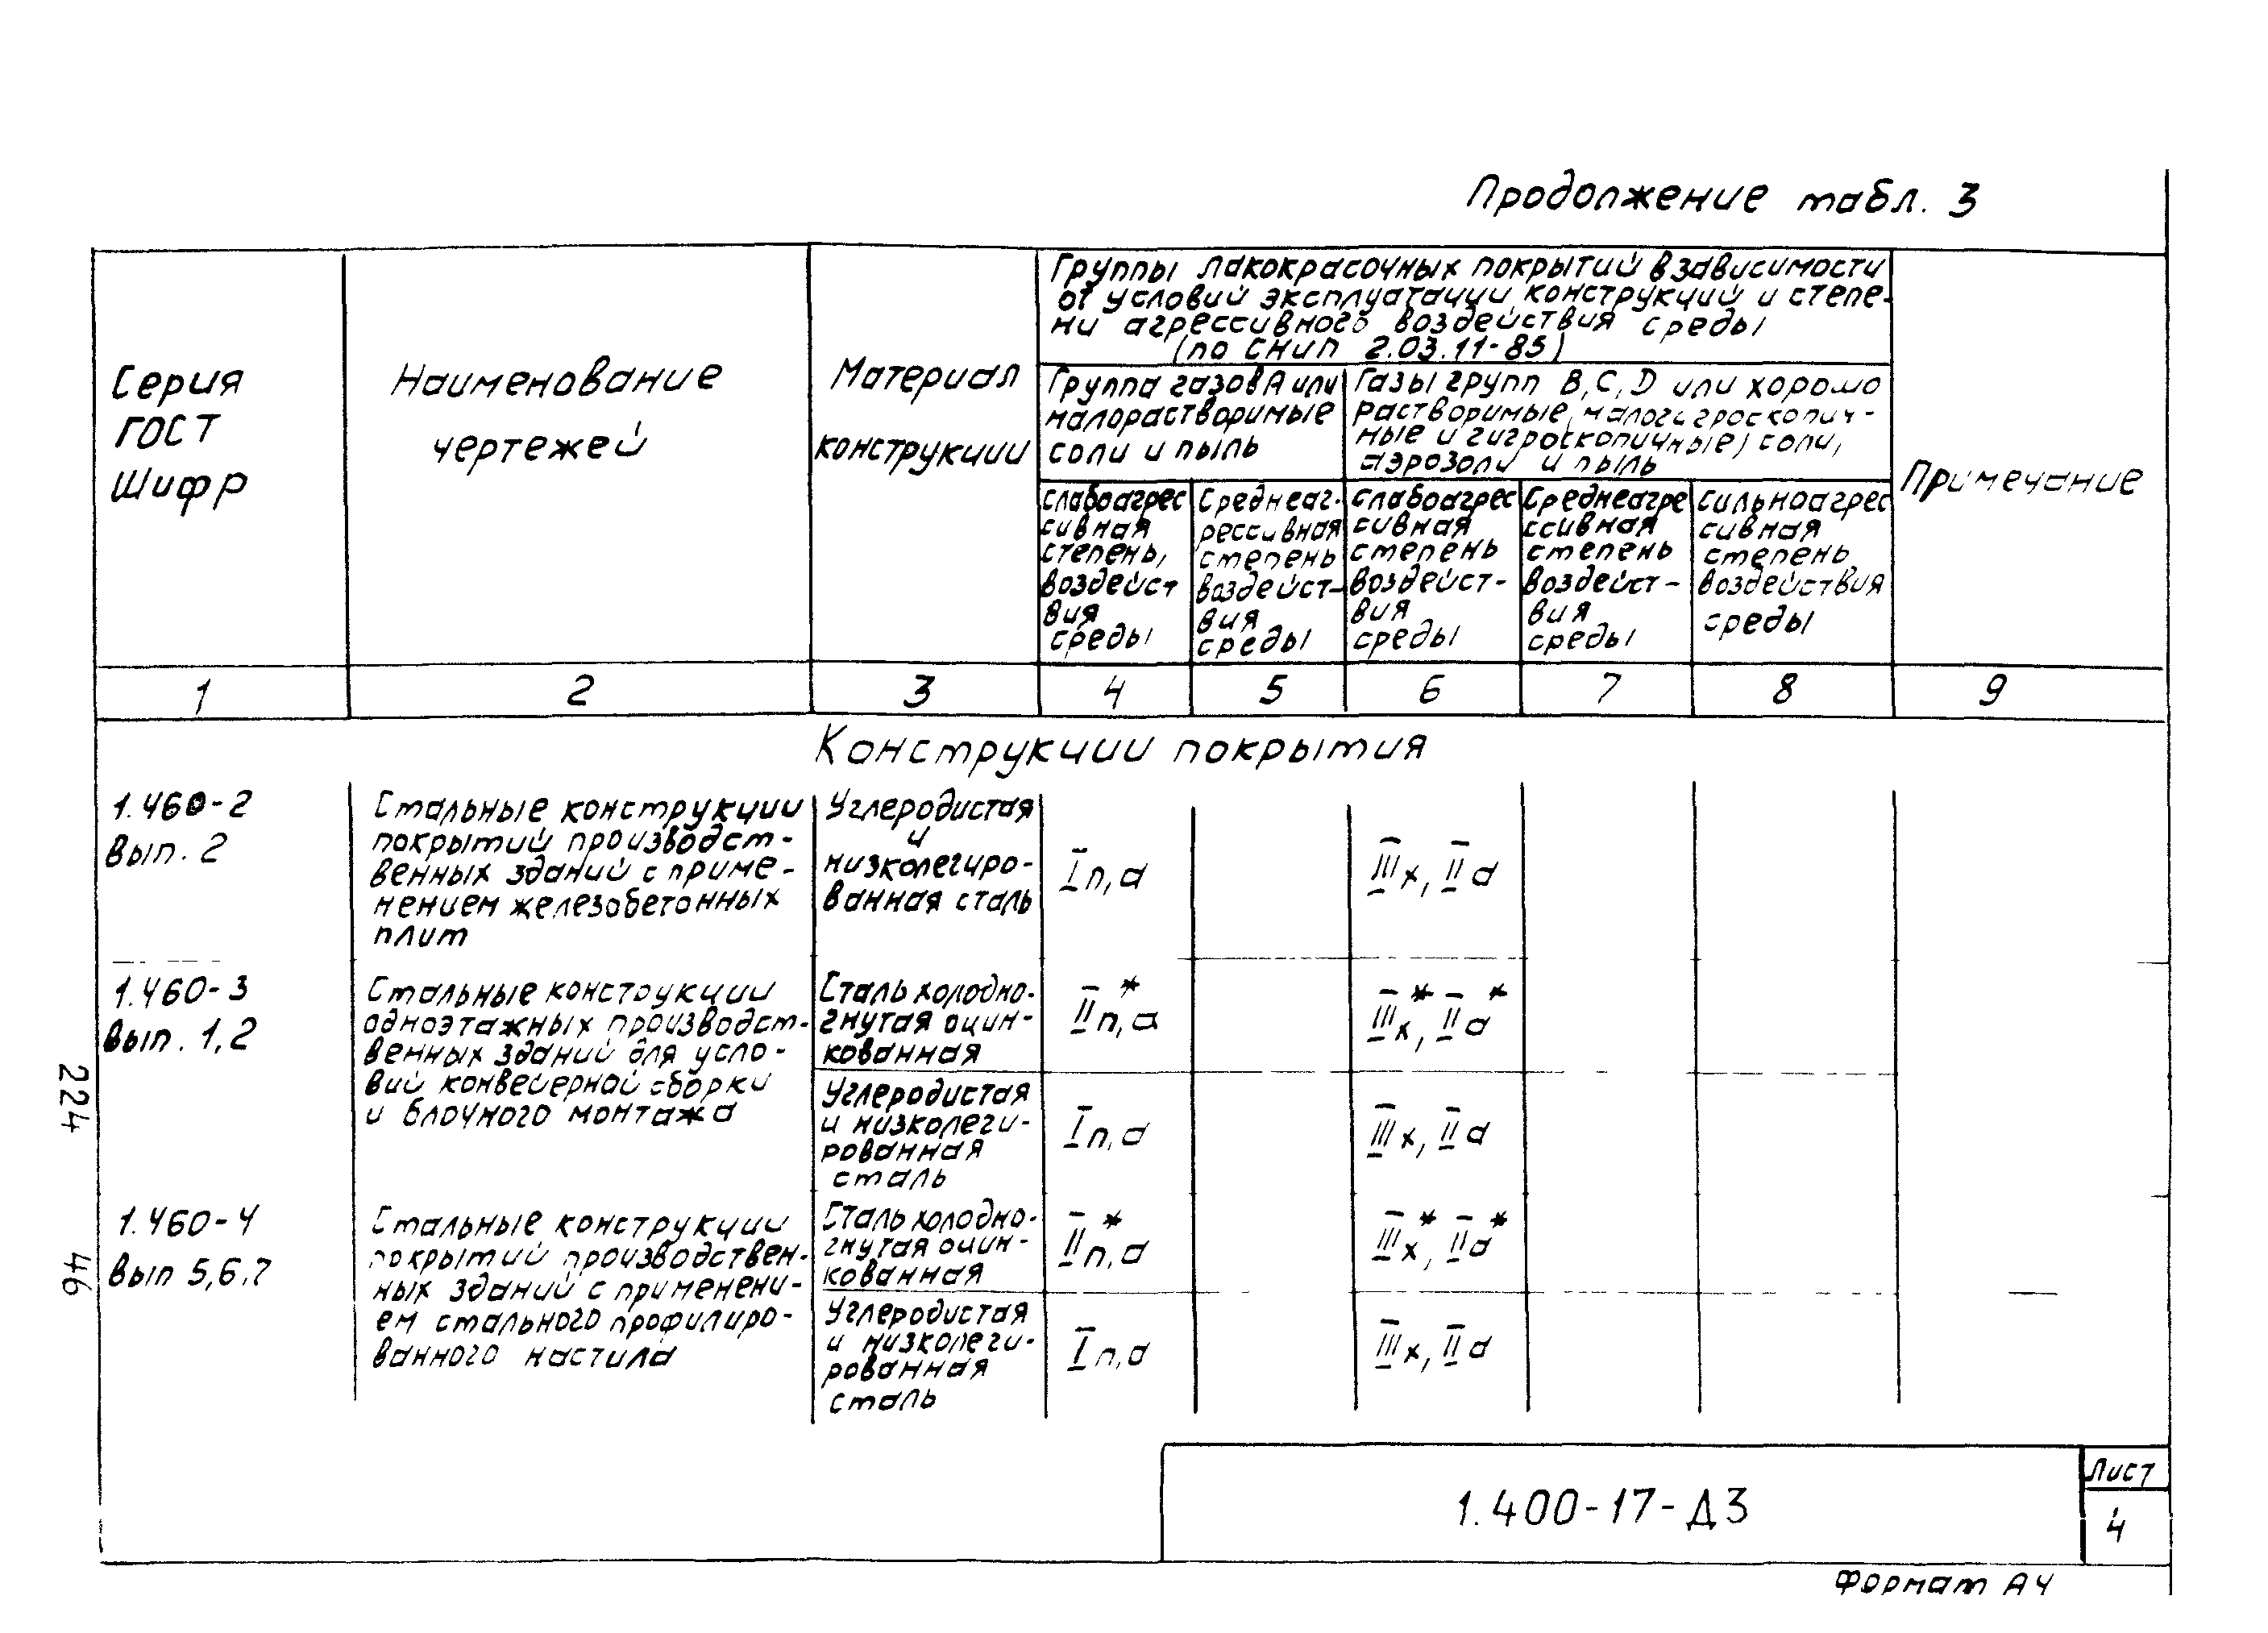 Продолжение табл. 3
Серия
ГОСТ
Шифр
Наименование
чертежей
Материал
конструкции
Группы лакокрасочных покрытий в зависимости
от условий эксплуатации конструкций и степе-
ни агрессивного воздействия среды
(по СНиП 2.03.11-85)
Группа газов А или
малорастворимые
соли и пыль
Газы групп В, С, D или хорошо
растворимые (малогигроскопич-
ные и гигроскопичные) соли,
аэрозоли и пыль
слабоагрес
сивная
степень,
воздейст
вия
среды
Среднеаг-
рессивная
степень
воздейст-
вия
среды
слабоагрес
сивная
степень
воздейст-
вия
среды
Среднеагре
ссивная
степень
воздейст-
вия
среды
сильноагрес
сивная
степень
воздействия
среды
Примечание
1 2 3 4 5 6 7 8 9
Конструкции покрытия
1.460-2
Вып. 2
Стальные конструкции
покрытий производст-
венных зданий с приме-
нением железобетонных
плит
Углеродистая
и
низколегиро-
ванная сталь
I п, а
III х, II а
1.460-3
Вып. 1,2
Стальные конструкции
одноэтажных производст-
венных зданий для усло-
вий конвейерной сборки
и блочного монтажа
Сталь холодно-
гнутая оцин-
кованная
II п, а *
III х *, II а *
Углеродистая
и низколеги-
рованная
сталь
I п, а
III х, II а
1.460-4
Вып 5,6,7
Стальные конструкции
покрытий производствен-
ных зданий с применени-
ем стального профилиро-
ванного настила
Сталь холодно-
гнутая оцин-
кованная
II п, а *
III х *, II а *
Углеродистая
и низколеги-
рованная
сталь
I п, а
III х, II а
224 46
1.400-17-Д3
Лист
4
Формат А4